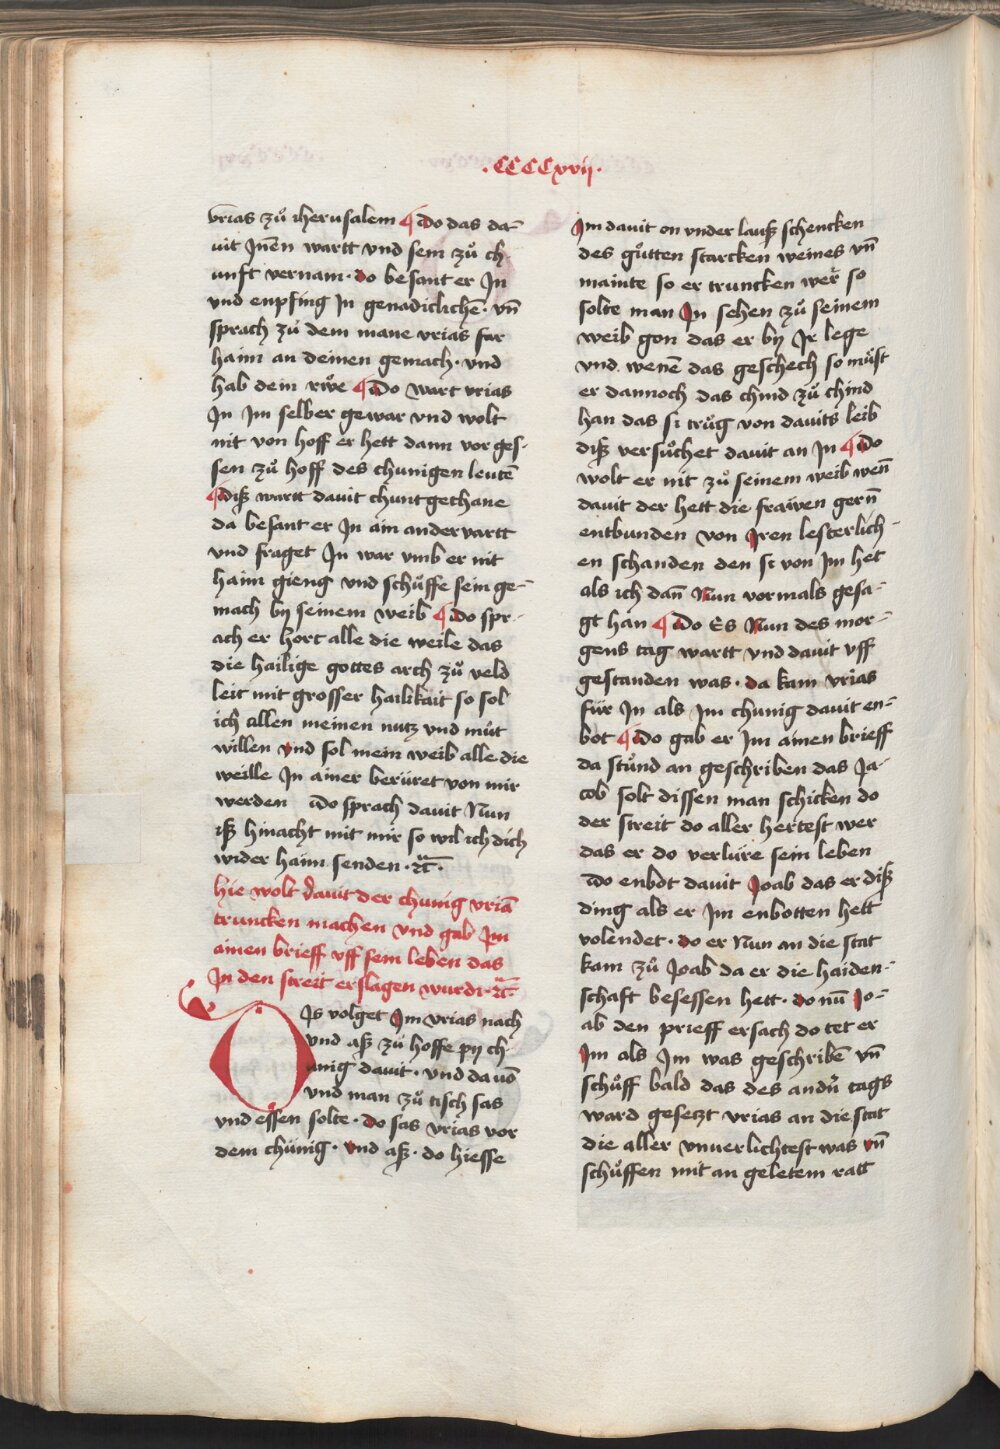 .CCCCxvij.
vrias zuͦ iherusalem ¶ Do das da-
uit Jnen wartt vnd sein zuͦ ch-
unft vernam · do besant er Jn
vnd enpfing Jn genadiclichē · vn̄
sprach zuͦ dem mane vrias far
haim an deinen gemach · vnd
hab dein rwͦe ¶ Do wart vrias
Jn Jm selber gewar vnd wolt
nit von hoff er hett dann vor ges-
sen zuͦ hoff des chunigen leutē
¶ Diß wartt dauit chunt gethane
da besant er Jn ain ander vartt
vnd fraget Jn war vmb er nit
haim gieng vnd schuͦffe sein ge-
mach by seinem weib ¶ Do spr-
ach er hort alle die weile das
die hailige gottes arch zuͦ veld
leit mit grosser hailikait so sol
ich allen meinen nutz vnd muͦt
willen vnd sol mein weib alle die
weille Jn ainer beruͤret von mir
werden Do sprach dauit Nun
iß hinacht mit mir so wil ich dich
wider haim senden · ⁊c̄ ·
hie wolt dauit der chunig vriā
truncken machen vnd gab Jm
ainen brieff vff sein leben das
Jn den streit erslagen wurd · ⁊c̄ ·
DJs volget Jm vrias nach
vnd aß zuͦ hoffe py ch-
unig dauit · vnd da vō
vnd man zuͦ tisch sas
vnd essen solte · do sas vrias vor
dem chuͤnig · vnd aß · do hiesse
Jm dauit on vnder lauß schencken
des guͦtten starcken weines vn̄
mainte so er truncken wer so
solte man Jn sehen zuͦ seinem
weib gon das er by Jr lege
vnd wenē das geschech so muͤst
er dannoch das chind zuͦ chind
han das si truͦg von dauits leib
diß versuͦchet dauit an Jn ¶ Do
wolt er nit zuͦ seinem weib wen̄
dauit der hett die frawen gern̄
entbunden von Jren lesterlich-
en schanden den si von Jm het
als ich dan̄ Nun vormals gesa-
gt han ¶ Do Es Nun des mor-
gens tag wartt vnd dauit vff
gestanden was · da kam vrias
fuͤr Jn als Jm chunig dauit en-
bot ¶ Do gab er Jm ainen brieff
da stuͦnd an geschriben das Ja-
cob solt dissen man schicken do
der streit do aller hertest wer
das er do verlure sein leben
Do enbot dauit Joab das er diß
ding als er Jm enbotten hett
volendet · do er Nun an die stat
kam zuͦ Joab da er die haiden-
schaft besessen hett · do nuͦ Jo-
ab den prieff ersach do tet er
Jm als Jm was geschribē vn̄
schuͦff bald das des andn̄ tags
ward gesetzt vrias an die stat
die aller vnuerlichtest was vn̄
schuͦffen mit an geletem ratt